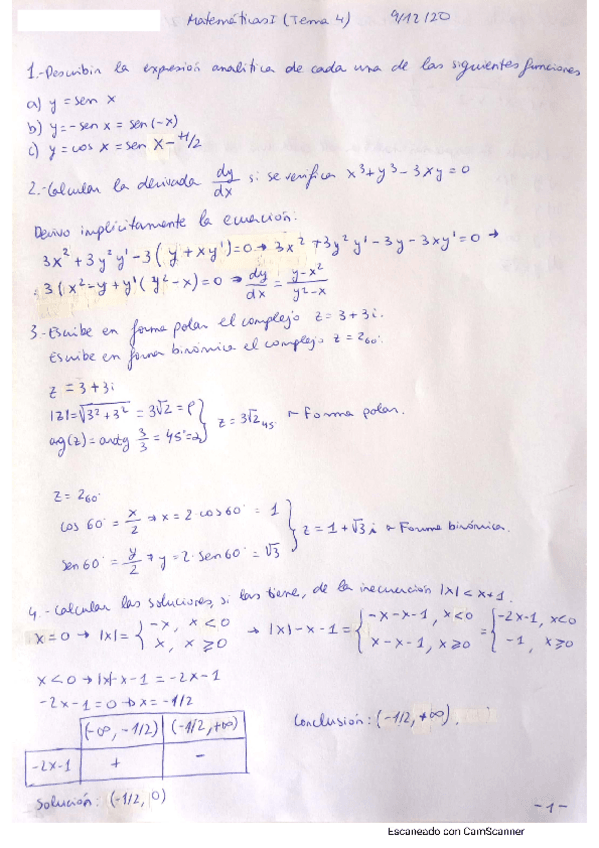 Matemáticas I (Tema 4) 9/12/20
1.-Describir la expresión analítica de cada una de las siguientes funciones
a) y = sen x
b) y = - sen x = sen (-x)
c) y = cos x = sen x - π/2
2.-Calcular la derivada dy/dx si se verifica x³+y³-3xy=0
Derivo implícitamente la ecuación:
3x²+3y²y'-3(y+xy')=0 → 3x²+3y²y'-3y-3xy'=0 →
3(x²-y+y'(y²-x)=0 → dy/dx = y-x²/y²-x
3.-Escribe en forma polar el complejo z=3+3i.
Escribe en forma binómica el complejo z=2₆₀°
z = 3+3i
|z|=√3²+3² = 3√2 = ρ
arg(z)=arctg 3/3 = 45°=α } z = 3√2₄₅° ← Forma polar.
z=2₆₀°
cos 60° = x/2 → x = 2·cos 60° = 1
sen 60° = y/2 → y = 2·sen 60° = √3 } z = 1+√3 i ← Forma binómica.
4.-Calcular las soluciones, si las tiene, de la inecuación |x|<x+1.
x=0 → |x|= { -x, x<0 x, x⩾0 → |x|-x-1 = { -x-x-1, x<0 x-x-1, x⩾0 = { -2x-1, x<0 -1, x⩾0
x<0 → |x|-x-1 = -2x-1
-2x-1=0 → x=-1/2
(-∞, -1/2) (-1/2, +∞) Conclusión: (-1/2, +∞).
-2x-1 + -
Solución: (-1/2, 0)
-1-
Escaneado con CamScanner